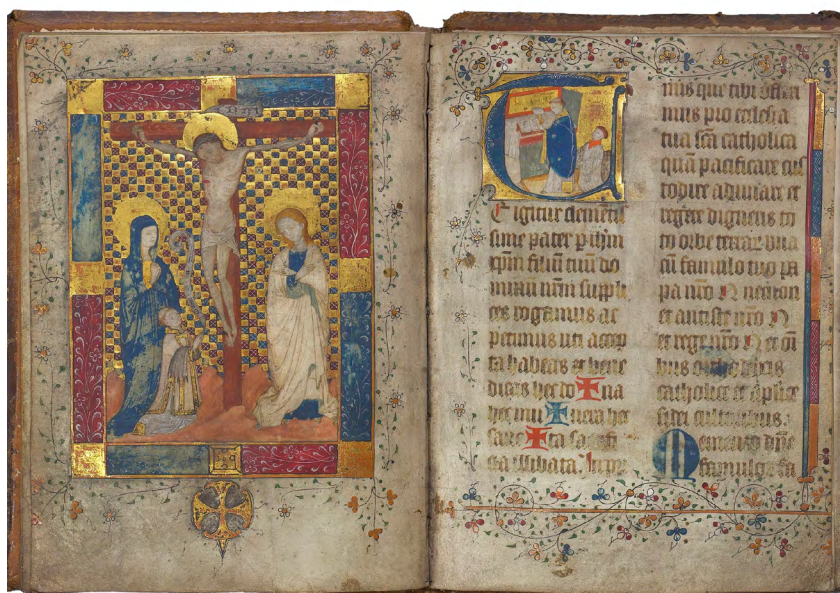 T
E igitur clemētis
sime pater p ihm
xpm filiū tuū do
minū nrm suppli
ces rogamus ac
petimus uti accep
ta habeas et bene
dicas hec do ✠ na
hec mu ✠ nera hec
sanc ✠ ta sacrifi
cia illibata. In pri
mis que tibi offeri
mus pro ecclesia
tua sca catholica
quā pacificare cus
todire adunare et
regere digneris to
to orbe terrar una
cū famulo tuo pa
pa nro N necnon
et antiste nro N
et rege nro N et oī
bus orthodoxis
catholice et aplice
fidei cultoribus.
Memento dne
famulor fa